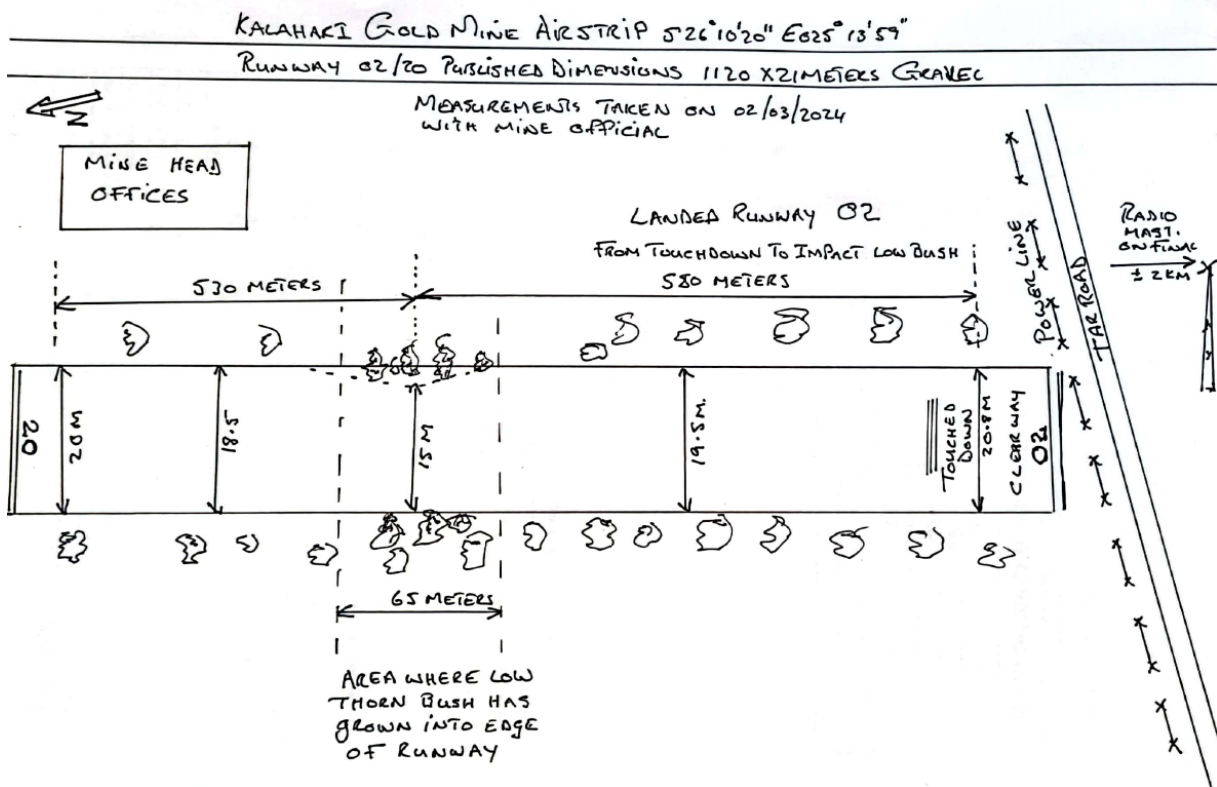 KALAHARI GOLD MINE AIRSTRIP S26°10'20" E025°13'59"
RUNWAY 02/20 PUBLISHED DIMENSIONS 1120 X21METERS GRAVEL
MEASUREMENTS TAKEN ON 02/03/2024
WITH MINE OFFICIAL
N
MINE HEAD
OFFICES
LANDED RUNWAY 02
FROM TOUCHDOWN TO IMPACT LOW BUSH
530 METERS
580 METERS
POWER LINE
TAR ROAD
RADIO
MAST.
ON FINAL
± 2KM
20
20M
18.5
15M
19.5M.
TOUCHED
DOWN
20.8M
CLEARWAY
02
65 METERS
AREA WHERE LOW
THORN BUSH HAS
GROWN INTO EDGE
OF RUNWAY